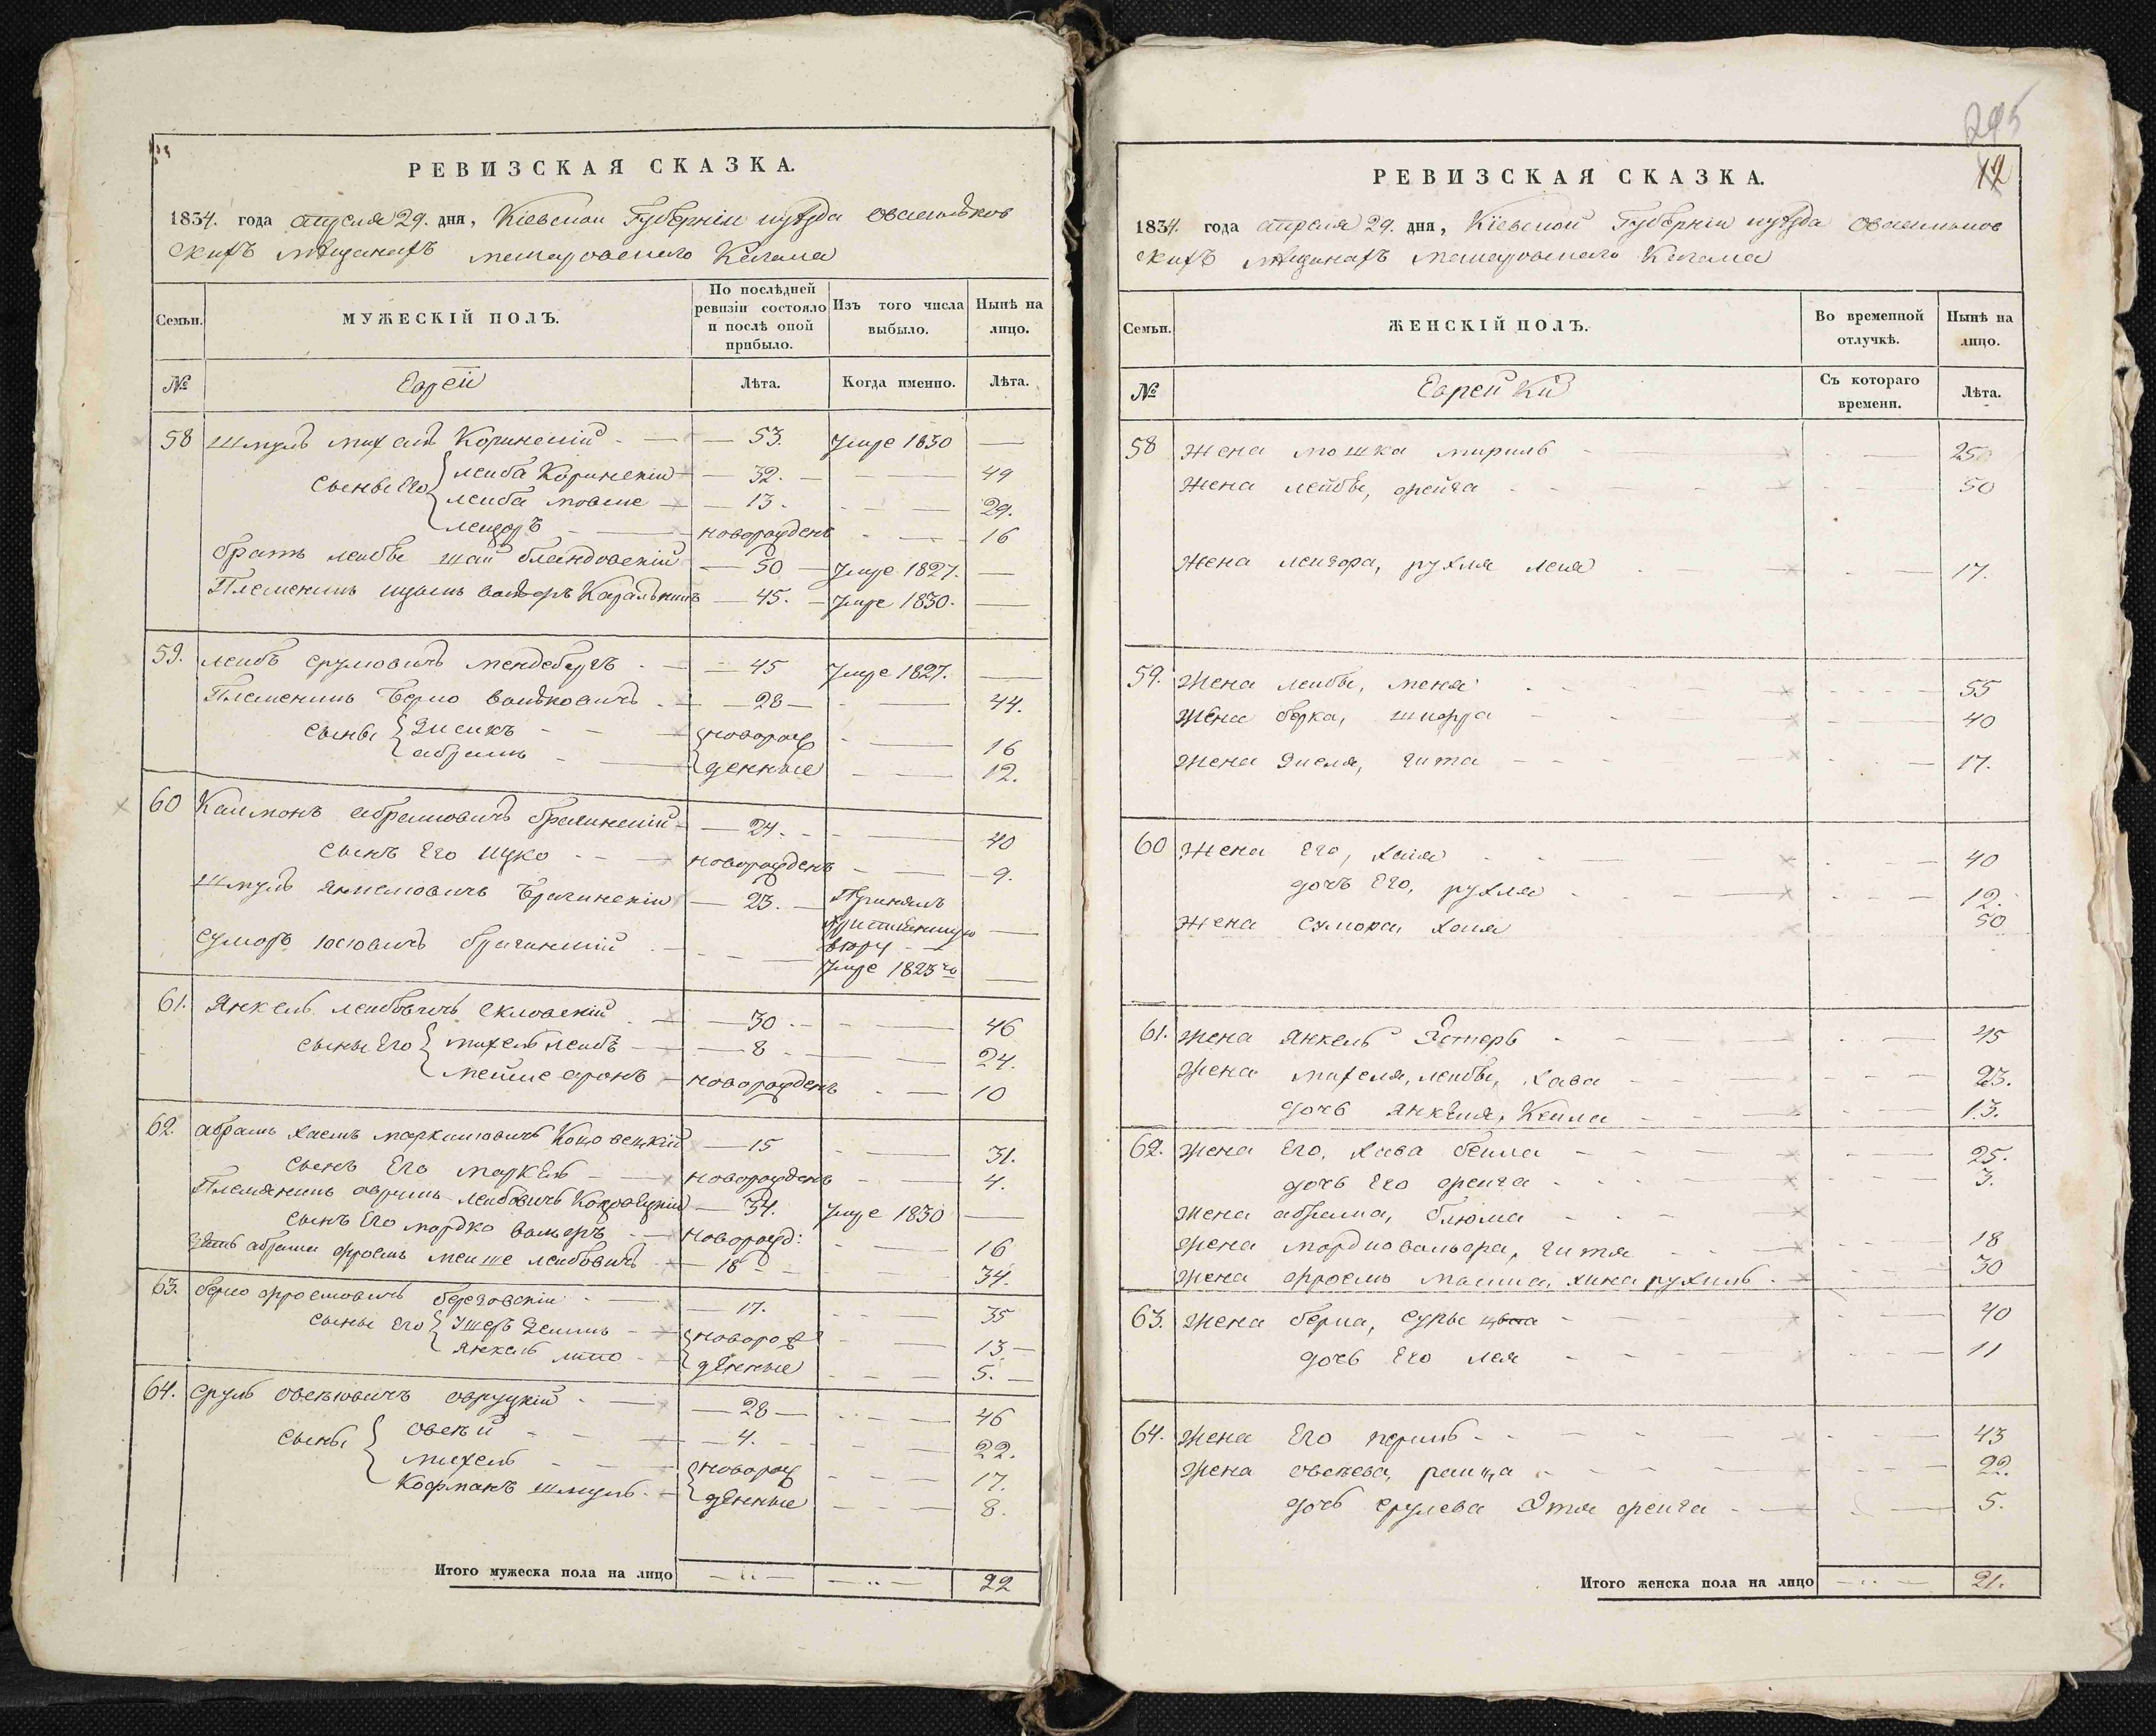 РЕВИЗСКАЯ СКАЗКА.
1834. года апреля 29. дня, Кіевской Губерніи уѣзда Овасильков
скихъ мѣщанахъ макаровского Кагала
Семьи.
МУЖЕСКІЙ ПОЛЪ.
По послѣдней ревизіи состояло и послѣ оной прибыло.
Изъ того числа выбыло.
Нынѣ на лицо.
№ Евреи Лѣта. Когда именно. Лѣта.
58 Шмуль михель 53. Умре 1830 —
Сыновье Его лейба 32. — 49
лейба мовше 13. — 29.
лейзоръ новорожденъ — 16
братъ лейбы шай 50 — Умре 1827. —
Племеникъ 45. — Умре 1830. —
59. лейбъ срулювичъ 45 Умре 1827. —
Племеникъ Берко 28 — 44.
сыны Зиселъ новорож 16
абрамъ денные 12.
60 Калмонъ абрамовичъ брагинскій 24. — 40
сынъ Его ицко новорожденъ — 9.
Шмуль Янкелювичъ Брагинскій 23. — Принялъ
христіянскую —
веру
Суморъ юсювичъ брагинскій — Умре 1823го —
61. Янкель лейбовичъ скловскій 30 — 46
сыны Его михель лейбъ 8 — 24.
мейше аронъ новорожденъ — 10
62. абрамъ хаемъ 15 — 31.
сынъ Его маркель новорожденъ — 4.
Племяникъ аврумъ лейбовичъ 34. Умре 1830 —
сынъ Его мордко вольфъ новорожд: — 16
зять абрама фроемъ мейше лейбовичъ 18 — 34.
63. берко фроемовичъ березовскій 17. — 35
сыны Его новорож 13 —
янкель денные 5. —
64. сруль овсѣювичъ овруцкій 28 — 46
сыны овсѣй 4. — 22.
михель новорож 17.
Кофманъ шмуль денные 8.
Итого мужеска пола на лицо 22
295
12
РЕВИЗСКАЯ СКАЗКА.
1834. года апреля 29. дня, Кіевской Губерніи уѣзда Овасильков
скихъ мѣщанахъ макаровского Кагала
Семьи.
ЖЕНСКІЙ ПОЛЪ.
Во временной отлучкѣ.
Нынѣ на лицо.
№ Еврейки Съ котораго времени. Лѣта.
58 жена мошка мириль — 25
жена лейбы, фейга — 50
жена лейзора, рухля лея — 17.
59. жена лейбы, меня — 55
жена берка, шифра — 40
жена Зиселя, гита — 17.
60 жена Его, хая — 40
дочъ Его, рухля — 12.
жена сумора хая 50
61. жена янкель Эстеръ — 45
жена михеля, лейбы, хава — 23.
дочь янкеля, Кейла — 13.
62. жена Его, хава бейла — 25.
дочь Его фейга — 3.
жена абрама, блюма
жена мордковольфа, гитя — 18
жена фроемъ мейша, хина рухиль — 30
63. жена берка, суры — 40
дочь Его лея — 11
64. жена Его перль — 43
жена овсеева, раица — 22.
дочь срулева Этя фейга — 5.
Итого женска пола на лицо 21.